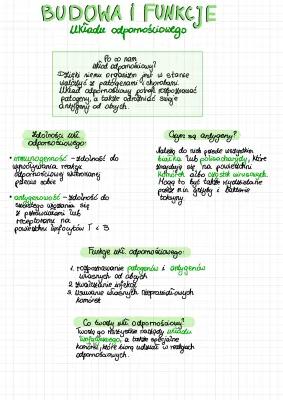 BUDOWA I FUNKCJE
układu odpornościowego
Po co nam
układ odpornościowy?
Dzięki niemu organizm jest w stanie
walczyć z patogenami i chorobami.
Układ odpornościowy potrafi rozpoznawać
patogeny, a także odróżniać swoje
antygeny od obcych.
Zdolności ukł.
odpornościowego:
• immunogenność - zdolność do
wywoływania reakcji
odpornościowej skierowanej
przeciw sobie
• antygenowość - zdolność do
swoistego wiązania się
z przeciwciałami lub
receptorami na
powierzchni limfocytów T i B
Czym są antygeny?
Należą do nich przede wszystkim
białka lub polisacharydy, które
znajdują się na powierzchni
komórek albo cząstek wirusowych.
Mogą to być także wydzielane
przez min. grzyby i bakterie
toksyny.
Funkcje ukł. odpornościowego:
1. rozpoznawanie patogenów i antygenów
własnych od obcych
2. zwalczanie infekcji
3. Usuwanie własnych nieprawidłowych
komórek
Co tworzy ukł. odpornościowy?
Tworzą go wszystkie narządy układu
limfatycznego, a także specjalne
komórki, które biorą udział w reakcjach
odpornościowych.